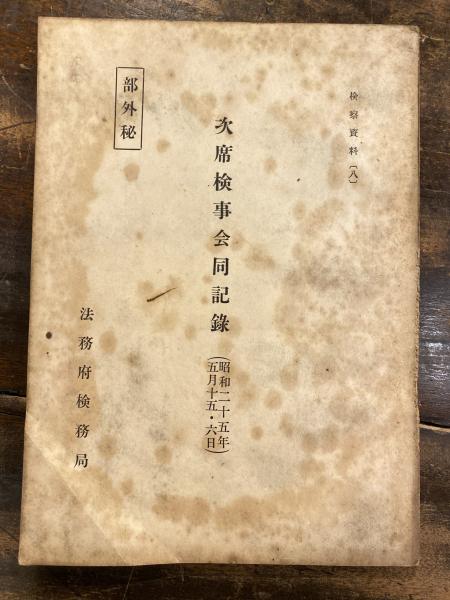 検察資料〔八〕
次席検事会同記錄
(昭和二十五年
五月十五・六日)
部外秘
法務府検務局